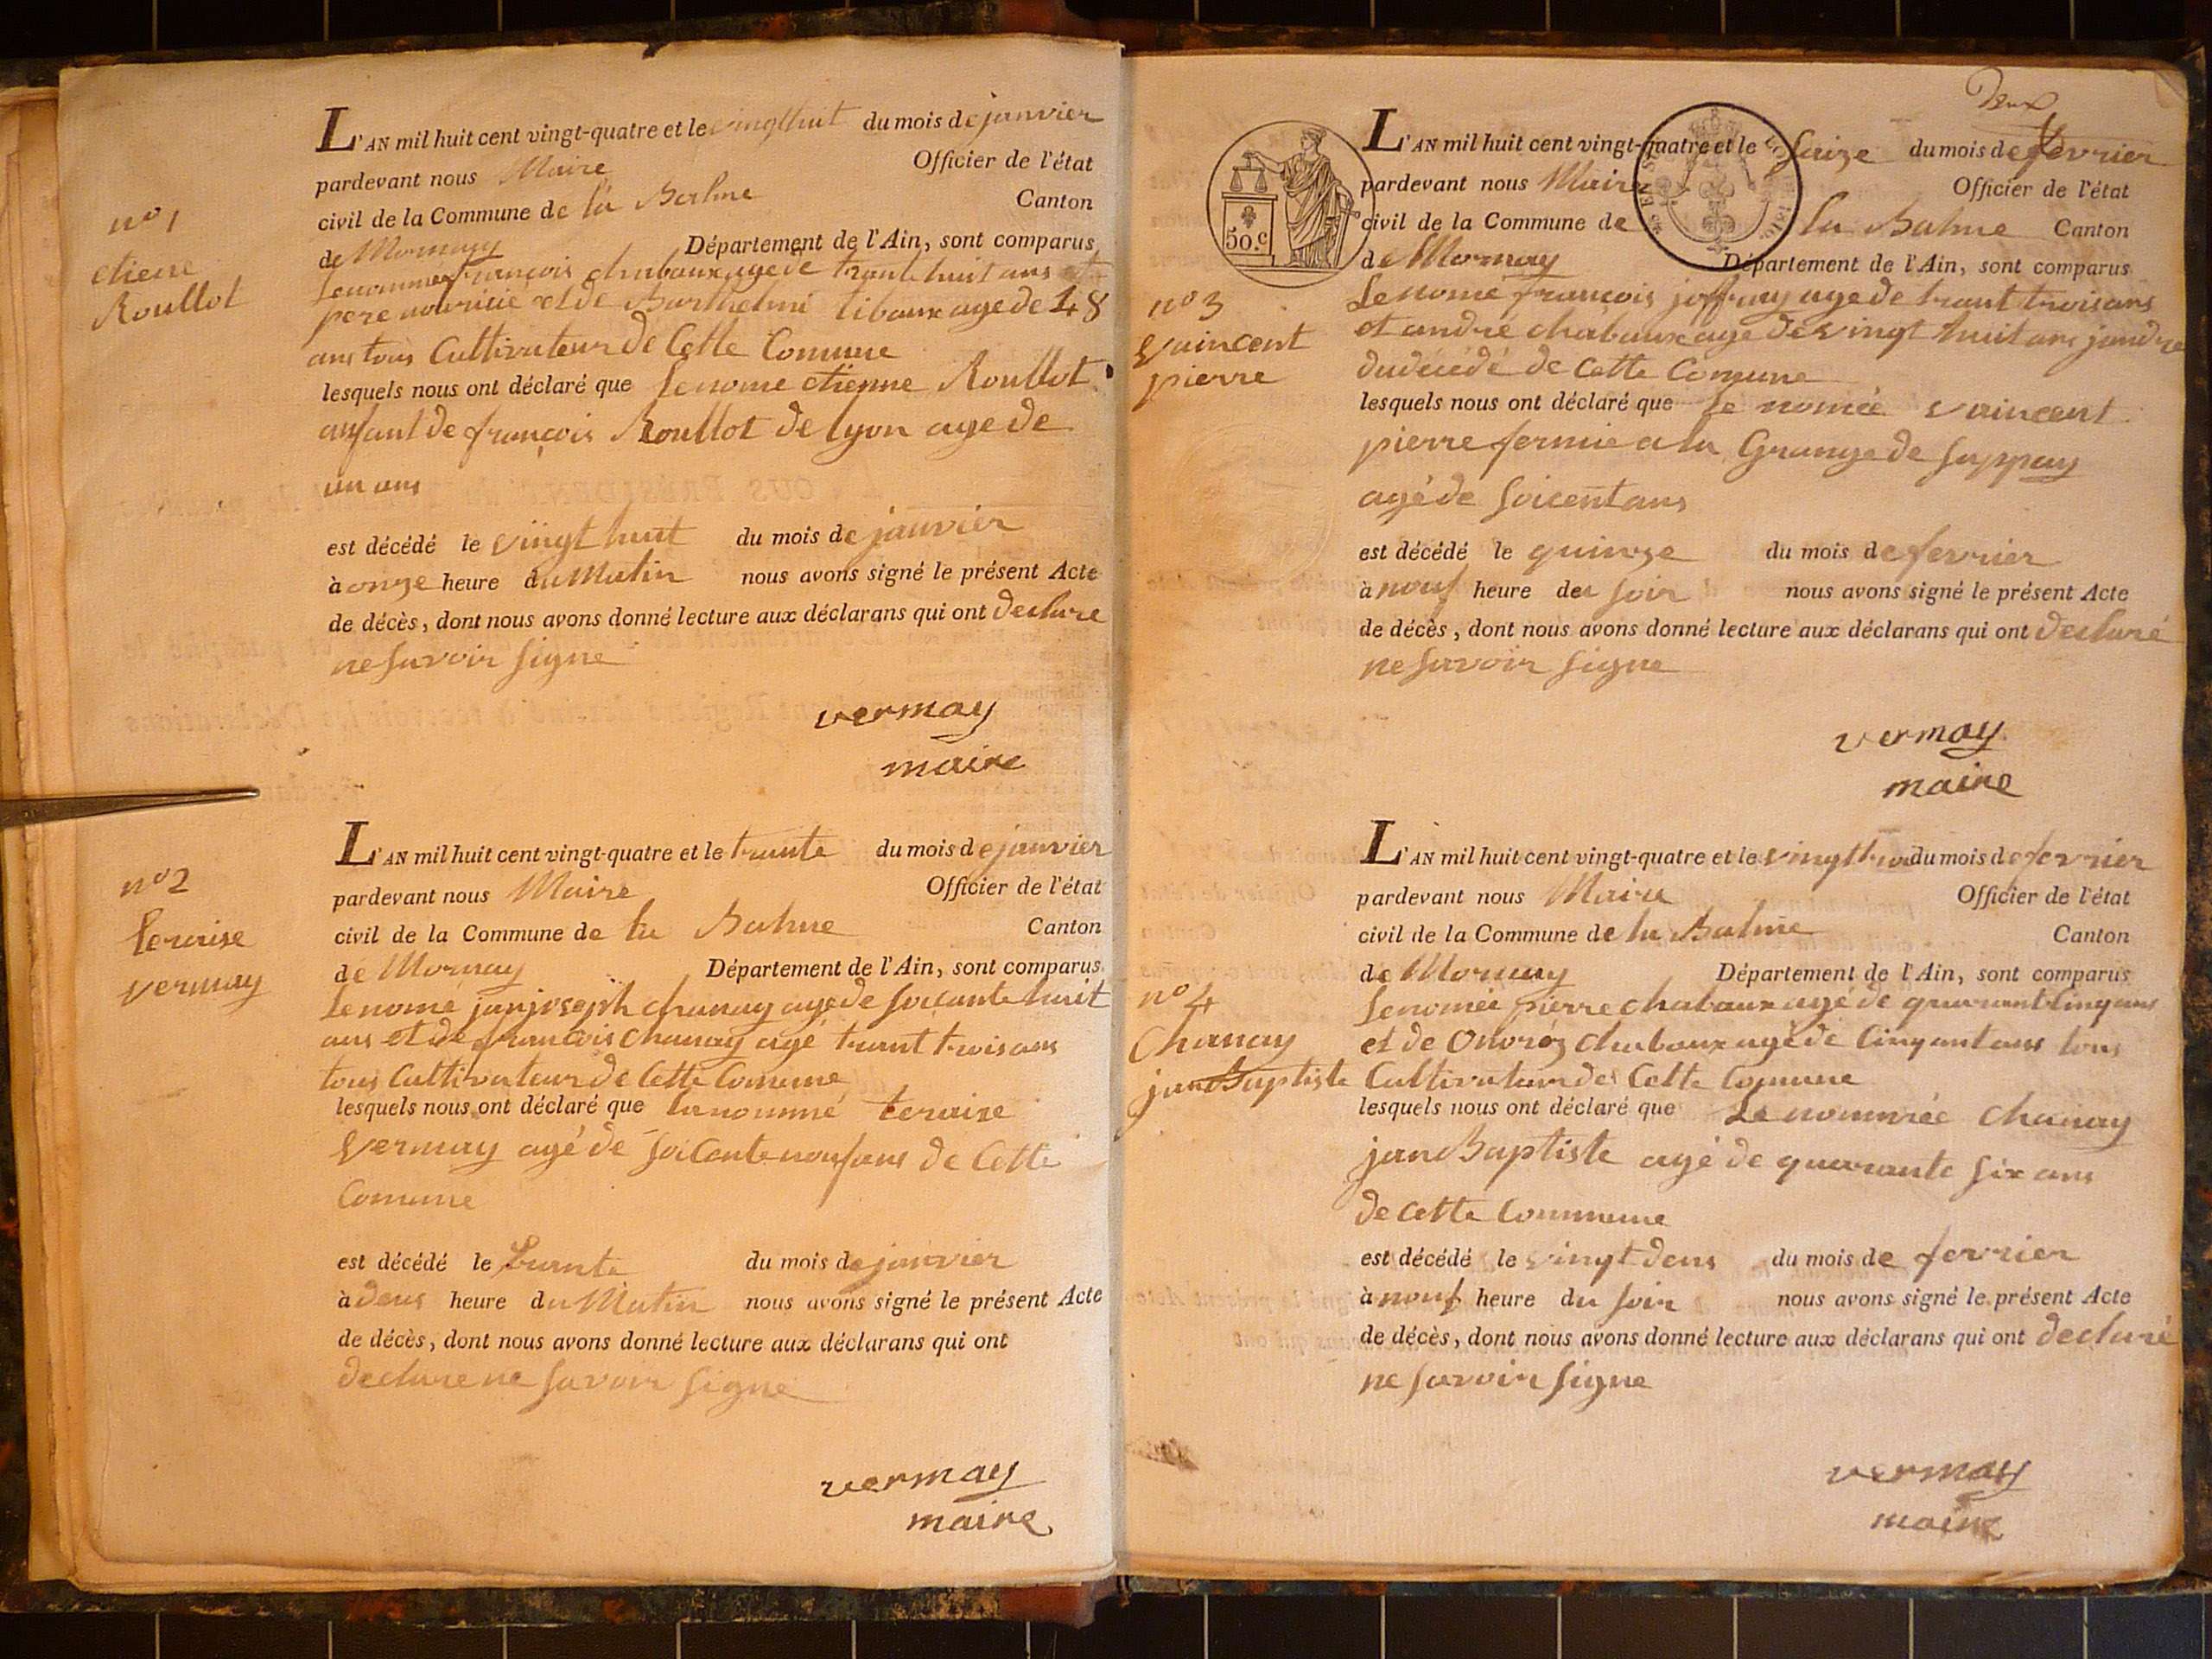 n° 1
etiene
Roullot
L'AN mil huit cent vingt-quatre et le vingt huit du mois de janvier
pardevant nous Maire Officier de l'état
civil de la Commune de la Balme Canton
de Mornay Département de l'Ain, sont comparus
le nomme françois chabaux age de trante huit ans et
pere nouricié et de Barthelmi tibaux age de 48
ans tous Cultivateur de Cette Comune
lesquels nous ont déclaré que le nome etienne Roullot
anfant de françois Roullot de lyon age de
un ans
est décédé le vingt huit du mois de janvier
à onze heure du Matin nous avons signé le présent Acte
de décès, dont nous avons donné lecture aux déclarans qui ont declare
ne savoir signe
vermay
maire
n° 2
teraise
vermay
L'AN mil huit cent vingt-quatre et le trante du mois de janvier
pardevant nous Maire Officier de l'état
civil de la Commune de la Balme Canton
de Mornay Département de l'Ain, sont comparus
le nomé janjoseph chanay age de soicante huit
ans et de françois chanay agé trant trois ans
tous Cultivateur de Cette Comune
lesquels nous ont déclaré que la nommé teraise
vermay agé de soicante noufans de Cette
Comune
est décédé le trante du mois de janvier
à deus heure du Matin nous avons signé le présent Acte
de décès, dont nous avons donné lecture aux déclarans qui ont
declare ne savoir signe
vermay
maire
Deux
50.c
L'AN mil huit cent vingt-quatre et le saize du mois de fevrier
pardevant nous Maire Officier de l'état
civil de la Commune de la Balme Canton
de Mornay Département de l'Ain, sont comparus
n° 3
vaincent
pierre
Le nomé françois joffray age de trant trois ans
et andré chabaux age de vingt huit ans jandre
du décédé de Cette Comune
lesquels nous ont déclaré que le nomée vaincent
pierre fermie a la Grange de suppay
agé de soicent ans
est décédé le quinze du mois de fevrier
à nouf heure du soir nous avons signé le présent Acte
de décès, dont nous avons donné lecture aux déclarans qui ont declaré
ne savoir signe
vermay
maire
L'AN mil huit cent vingt-quatre et le vingt trois du mois de fevrier
pardevant nous Maire Officier de l'état
civil de la Commune de la Balme Canton
de Mornay Département de l'Ain, sont comparus
n° 4
Chanay
jan Baptiste
le nomée pierre chabaux agé de quarant cinq ans
et de chabaux agé de Cinqant ans tous
Cultivateur de Cette Comune
lesquels nous ont déclaré que Le nommée Chanay
jan Baptiste agé de quarante six ans
de Cette Commune
est décédé le vingt deus du mois de fevrier
à nouf heure du soir nous avons signé le présent Acte
de décès, dont nous avons donné lecture aux déclarans qui ont declaré
ne savoir signe
vermay
maire